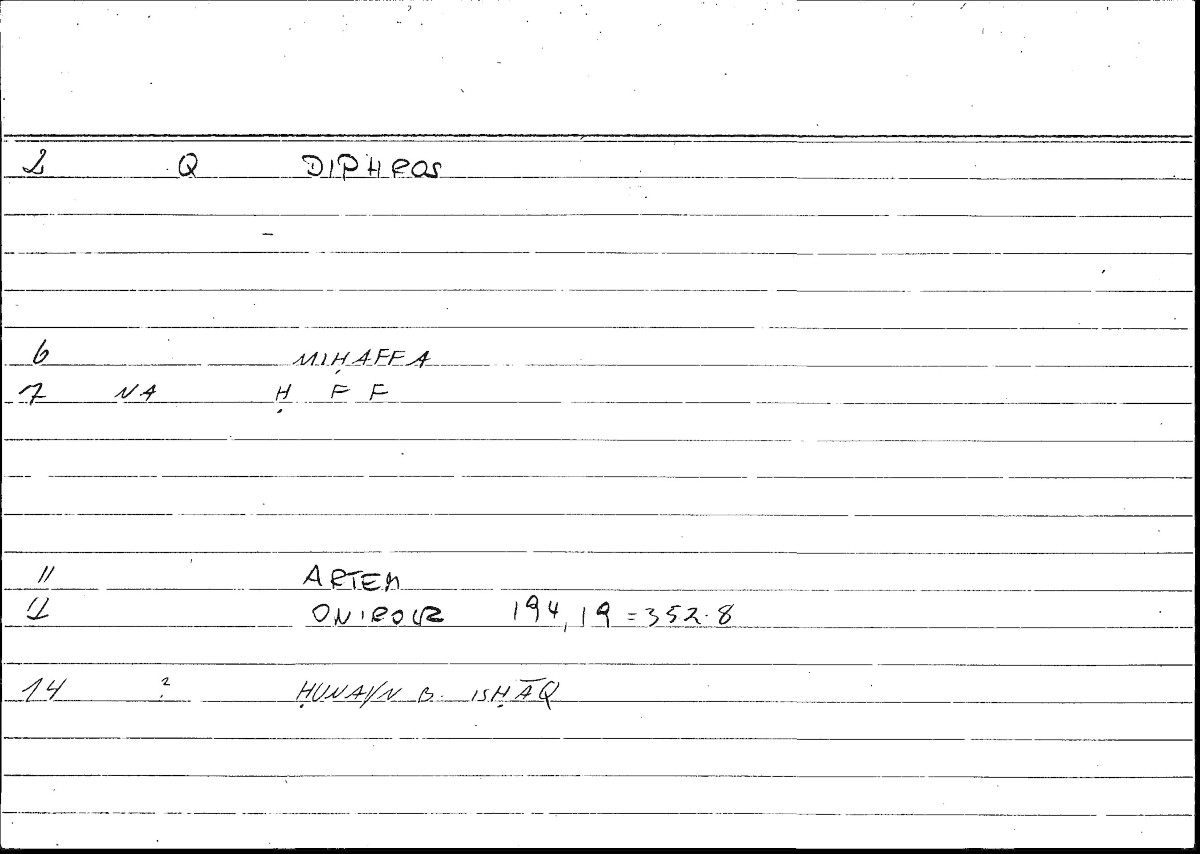 2 Q DIPHROS
6 MIḤAFFA
7 NA Ḥ F F
11 ARTEM
12 ONIROCR 194,19 = 352.8
14 ? ḤUNAYN B. ISḤĀQ